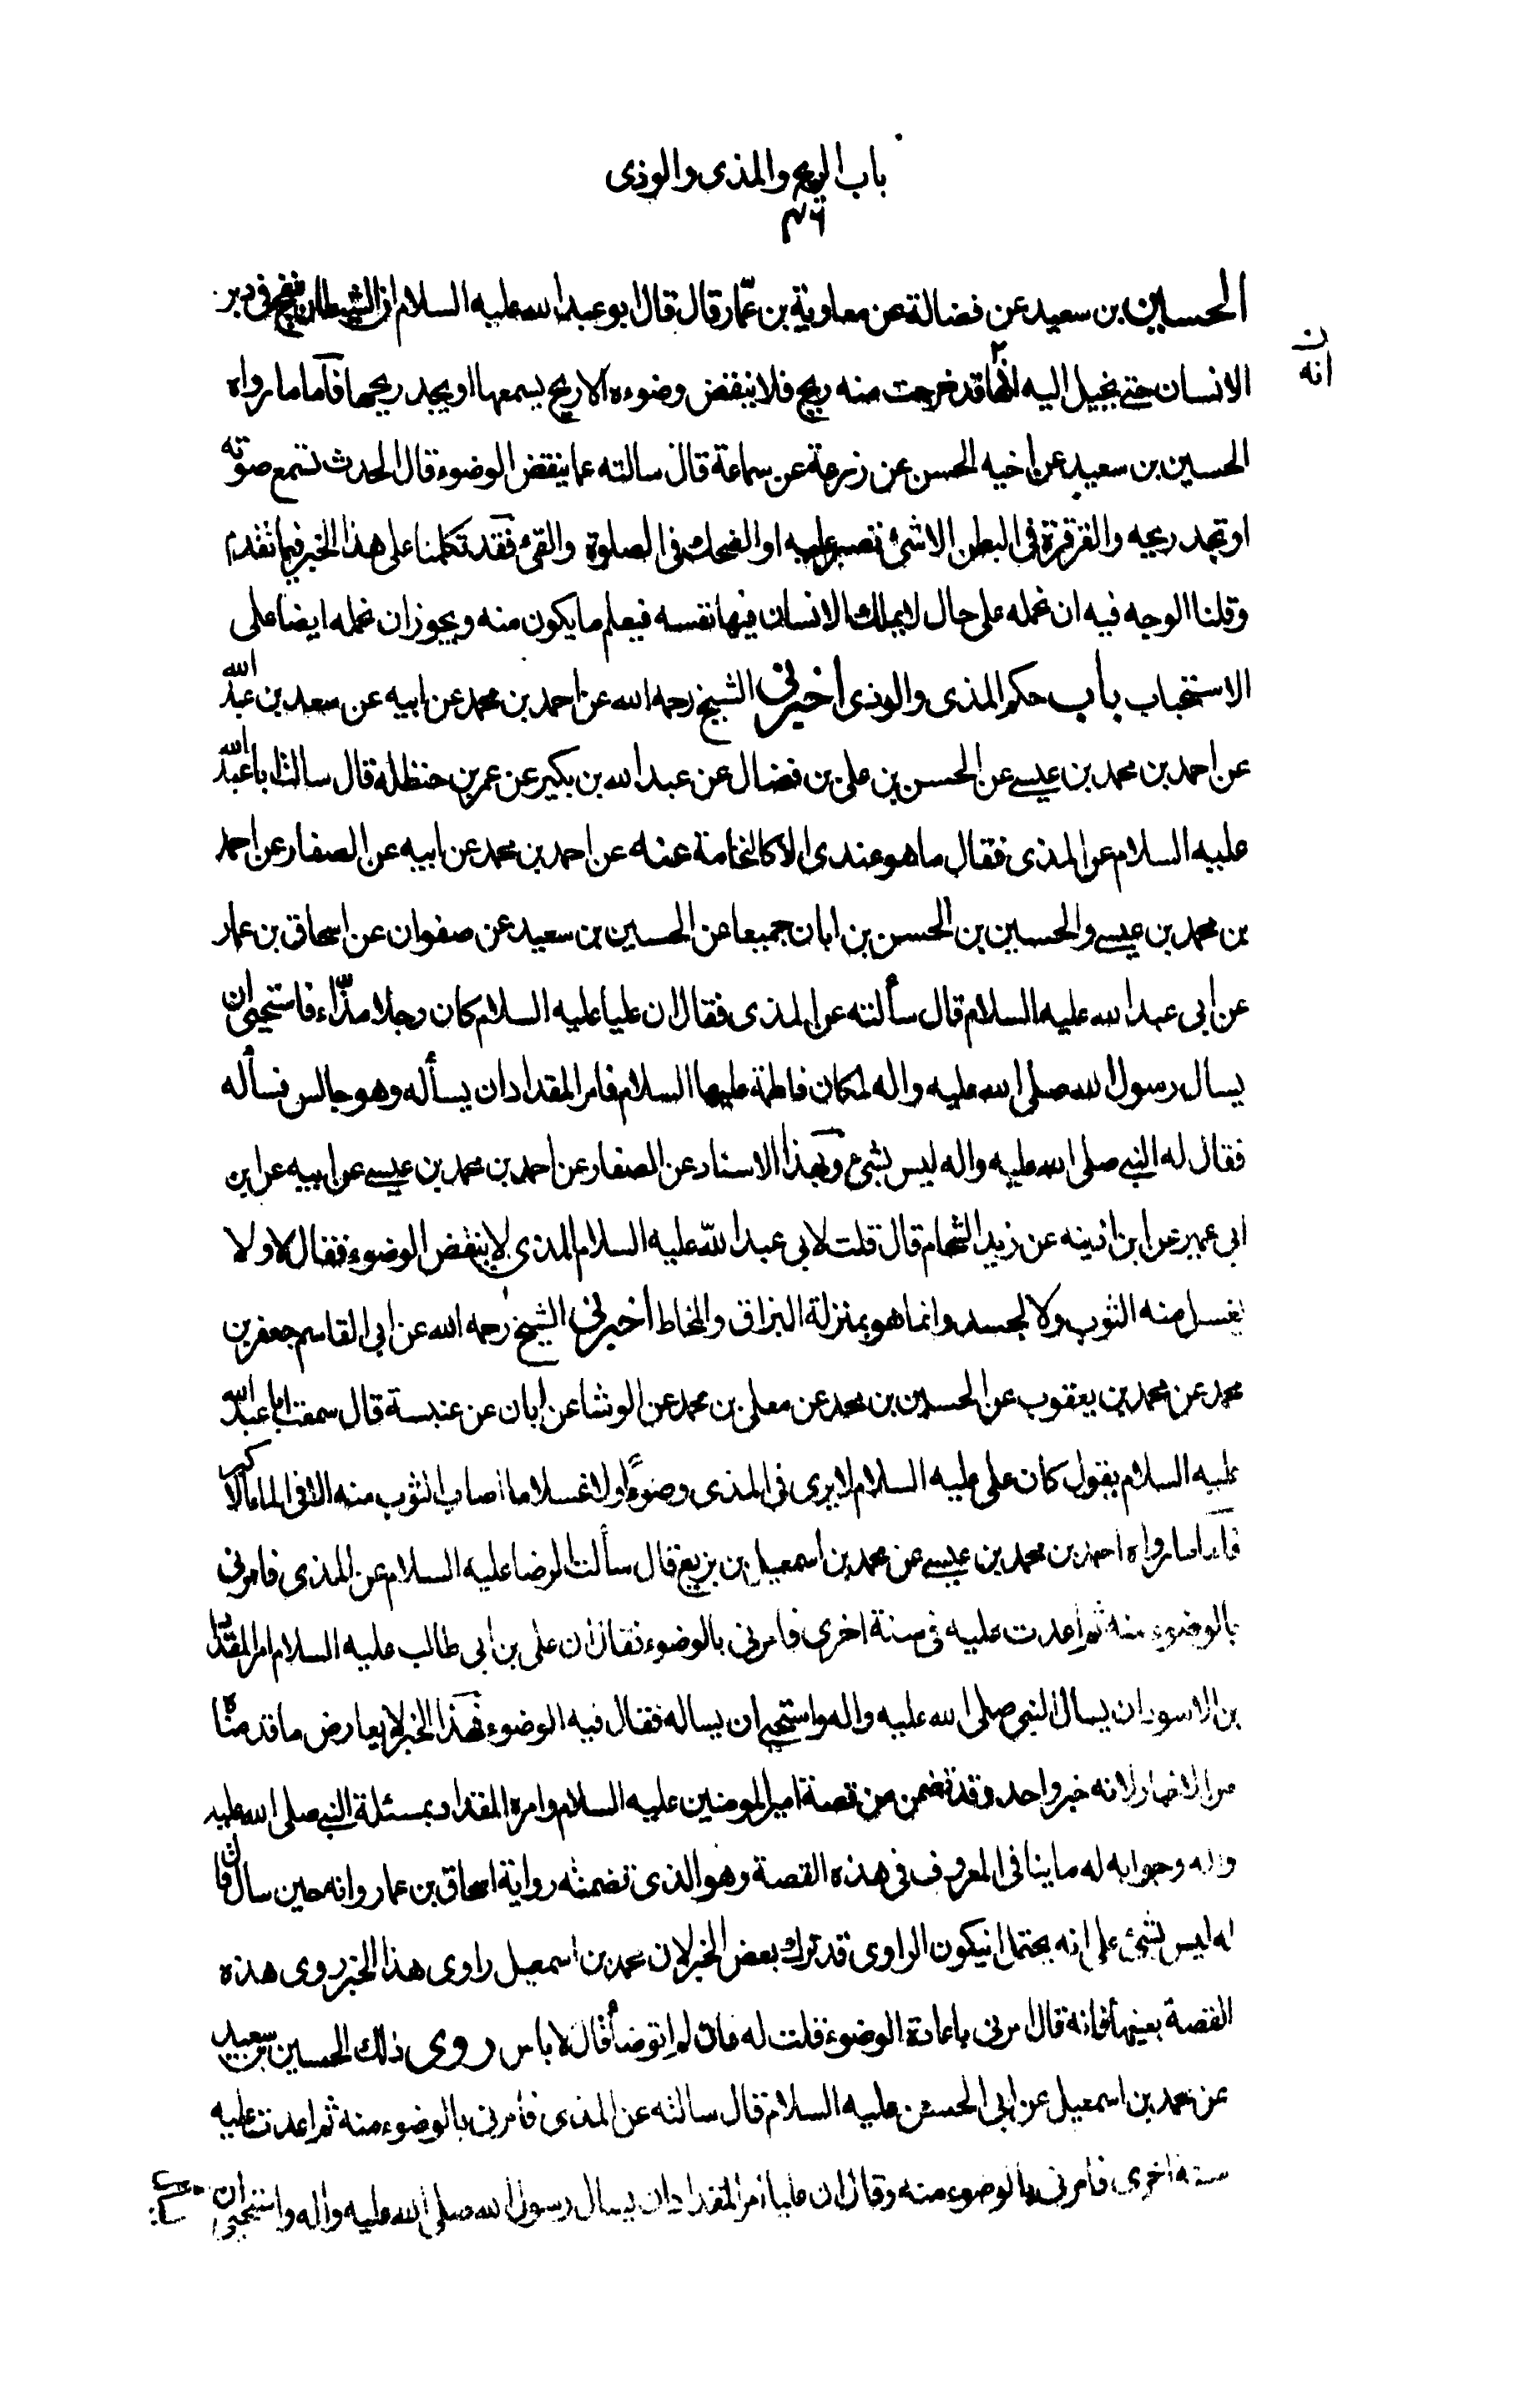 باب الريح والمذى والوذى
٤٦
الحسين بن سعيد عن فضالة عن معاوية بن عمّار قال قال ابو عبد الله عليه السلام ان الشيطان ينفخ في دبر
ن
انه
الانسان حتى يخيل اليه انها قد خرجت منه ريح فلا ينقض وضوءه الا ريح يسمعها او يجد ريحها فآما ما رواه
الحسين بن سعيد عن اخيه الحسن عن زرعة عن سماعة قال سالته عما ينقض الوضوء قال الحدث تسمع صوته
او تجد ريحه والقرقرة فى البطن الا شئ تصبر عليه او الضحك فى الصلوة والقئ فقد تكلمنا على هذا الخبر فيما تقدم
وقلنا الوجه فيه ان نحمله على حال لا يملك الانسان فيها نفسه فيعلم ما يكون منه ويجوز ان نحمله ايضا على
الاستحباب باب حكم المذى والوذى اخبرنى الشيخ رحمه الله عن احمد بن محمد عن ابيه عن سعد بن عبد الله
عن احمد بن محمد بن عيسى عن الحسن بن على بن فضال عن عبد الله بن بكير عن عمر بن حنظلة قال سالت ابا عبد الله
عليه السلام عن المذى فقال ما هو عندى الا كالنخامة عنه عن احمد بن محمد عن ابيه عن الصفار عن احمد
بن محمد بن عيسى والحسين بن الحسن بن ابان جميعا عن الحسين بن سعيد عن صفوان عن اسحاق بن عمار
عن ابى عبد الله عليه السلام قال سألته عن المذى فقال ان عليا عليه السلام كان رجلا مذّاء فاستحيى ان
يسال رسول الله صلى الله عليه واله لمكان فاطمة عليها السلام فامر المقداد ان يسأله وهو جالس فسأله
فقال له النبى صلى الله عليه واله ليس بشئ وبهذا الاسناد عن الصفار عن احمد بن محمد بن عيسى عن ابيه عن ابن
ابى عمير عن ابن اذينه عن زيد الشحام قال قلت لابى عبد الله عليه السلام المذى لا ينقض الوضوء فقال لا ولا
يغسل منه الثوب ولا الجسد وانما هو بمنزلة البزاق والمخاط اخبرنى الشيخ رحمه الله عن ابى القاسم جعفر بن
محمد عن محمد بن يعقوب عن الحسين بن محمد عن معلى بن محمد عن الوشا عن ابان عن عنبسة قال سمعت ابا عبد الله
عليه السلام يقول كان على عليه السلام لا يرى فى المذى وضوءًا ولا غسلا ما اصاب الثوب منه الا فى الماء الاكبر
فآما ما رواه احمد بن محمد بن عيسى عن محمد بن اسمعيل بن بزيع قال سألت الرضا عليه السلام عن المذى فامرنى
بالوضوء منه ثم اعدت عليه فى سنة اخرى فامرنى بالوضوء فقال ان على بن ابى طالب عليه السلام امر المقداد
بن الاسود ان يسال النبى صلى الله عليه واله واستحيى ان يساله فقال فيه الوضوء فهذا الخبر لا يعارض ما قدمناه
من الاخبار لانه خبر واحد وقد تضمن من قصة امير المومنين عليه السلام وامره المقداد بمسئلة النبى صلى الله عليه
واله وجوابه له ما ينافى المعروف فى هذه القصة وهو الذى تضمنته رواية اسحاق بن عمار وانه حين سال قال
له ليس بشئ على انه يحتمل ان يكون الراوى قد ترك بعض الخبر لان محمد بن اسمعيل راوى هذا الخبر روى هذه
القصة بعينها فانه قال امرنى باعادة الوضوء فقلت له فان لم اتوضأ قال لا باس روى ذلك الحسين بن سعيد
عن محمد بن اسمعيل عن ابى الحسن عليه السلام قال سالته عن المذى فامرنى بالوضوء منه ثم اعدت عليه
سنة اخرى فامرنى بالوضوء منه وقال ان عليا امر المقداد ان يسال رسول الله صلى الله عليه واله واستحيى ان